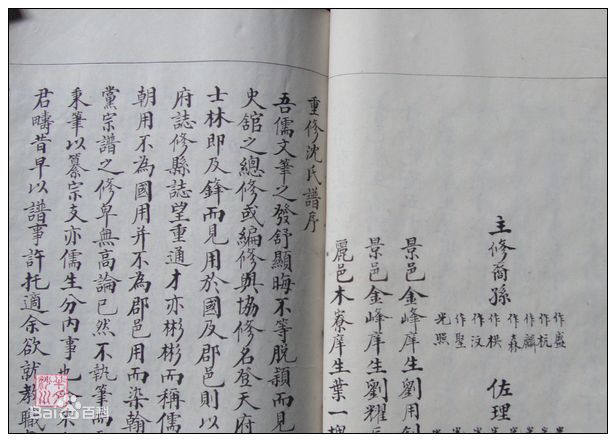 主修裔孫
作盛
作杭
作麟
作森
作棋
光照
佐理
景邑金峰庠生劉用
景邑金峰庠生劉耀
麗邑木寮庠生葉一
重修沈氏譜序
吾儒文筆之發舒顯晦不等脫穎而見
史舘之總修或編修與協修名登天府
士林即及鋒而見用於國及郡邑則以
府誌修縣誌望重通才亦彬彬而稱儒
朝用不為國用并不為郡邑用而染翰
黨宗譜之修卑無高論已然不執筆而
秉筆以纂宗支亦儒生分內事也
君疇昔早以譜事許托適余欲就教職
Bai 百科